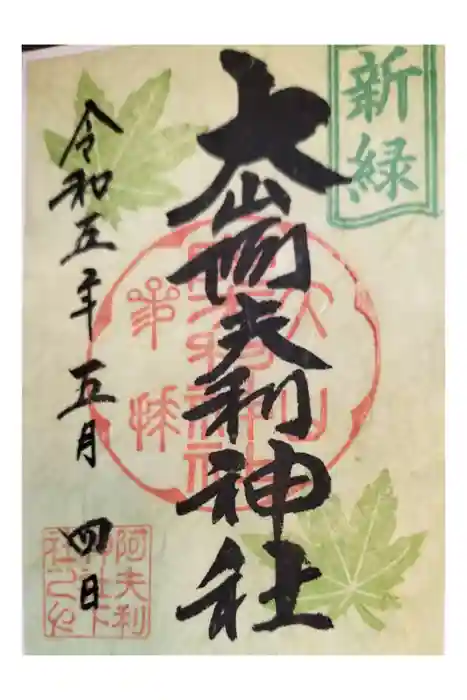 新緑
大山阿夫利神社
令和五年 五月 四日
阿夫利
神社下
社之印